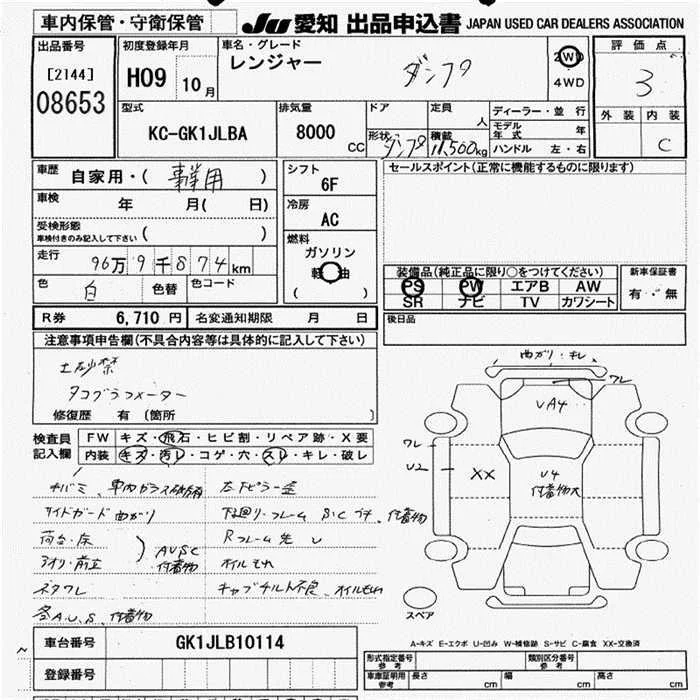 車内保管・守衛保管
JU 愛知 出品申込書 JAPAN USED CAR DEALERS ASSOCIATION
出品番号
[2144]
08653
初度登録年月
H09 10月
車名・グレード
レンジャー ダンプ
2WD
4WD
評価点
3
外装 内装
C
型式
KC-GK1JLBA
排気量
8000 CC
ドア
形状 ダンプ
定員
人
積載
11,500kg
ディーラー・並行
モデル年式 年
ハンドル 左・右
車歴
自家用・( 事業用 )
車検
年 月( 日)
受検形態
車検付きのみ記入して下さい ( )
走行
96万9千874km
色
白
色替
色コード
シフト
6F
冷房
AC
燃料
ガソリン
軽油
( )
セールスポイント(正常に機能するものに限ります)
装備品(純正品に限り○をつけてください)
PS PW エアB AW
SR ナビ TV カワシート
新車保証書
有・無
後日品
R券 6,710円 名変通知期限 月 日
注意事項申告欄(不具合内容等は具体的に記入して下さい)
土砂禁
タコグラフメーター
修復歴 有〔箇所 〕
検査員記入欄
FW キズ・飛石・ヒビ割・リペア跡・X要
内装 キズ・汚レ・コゲ・穴・スレ・キレ・破レ
サイドガード曲がり
荷台・床
アオリ・前立
AUSC
付着物
ネタワレ
各A.U.S. 付着物
左下ピラー歪
下回り・フレーム S.C ブチ、付着物
Rフレーム先 U
オイルもれ
キャブチルト不良、オイルもれ
曲がり・キレ
ワレ
UA4
ワレ
U2
XX
U4
付着物大
スペア
A-キズ E-エクボ U-凹み W-補修跡 S-サビ C-腐食 XX-交換済
車台番号 GK1JLB10114
登録番号
形式指定番号
参考
類別区分番号
参考
車庫証明用
参考
長さ cm 幅 cm 高さ cm